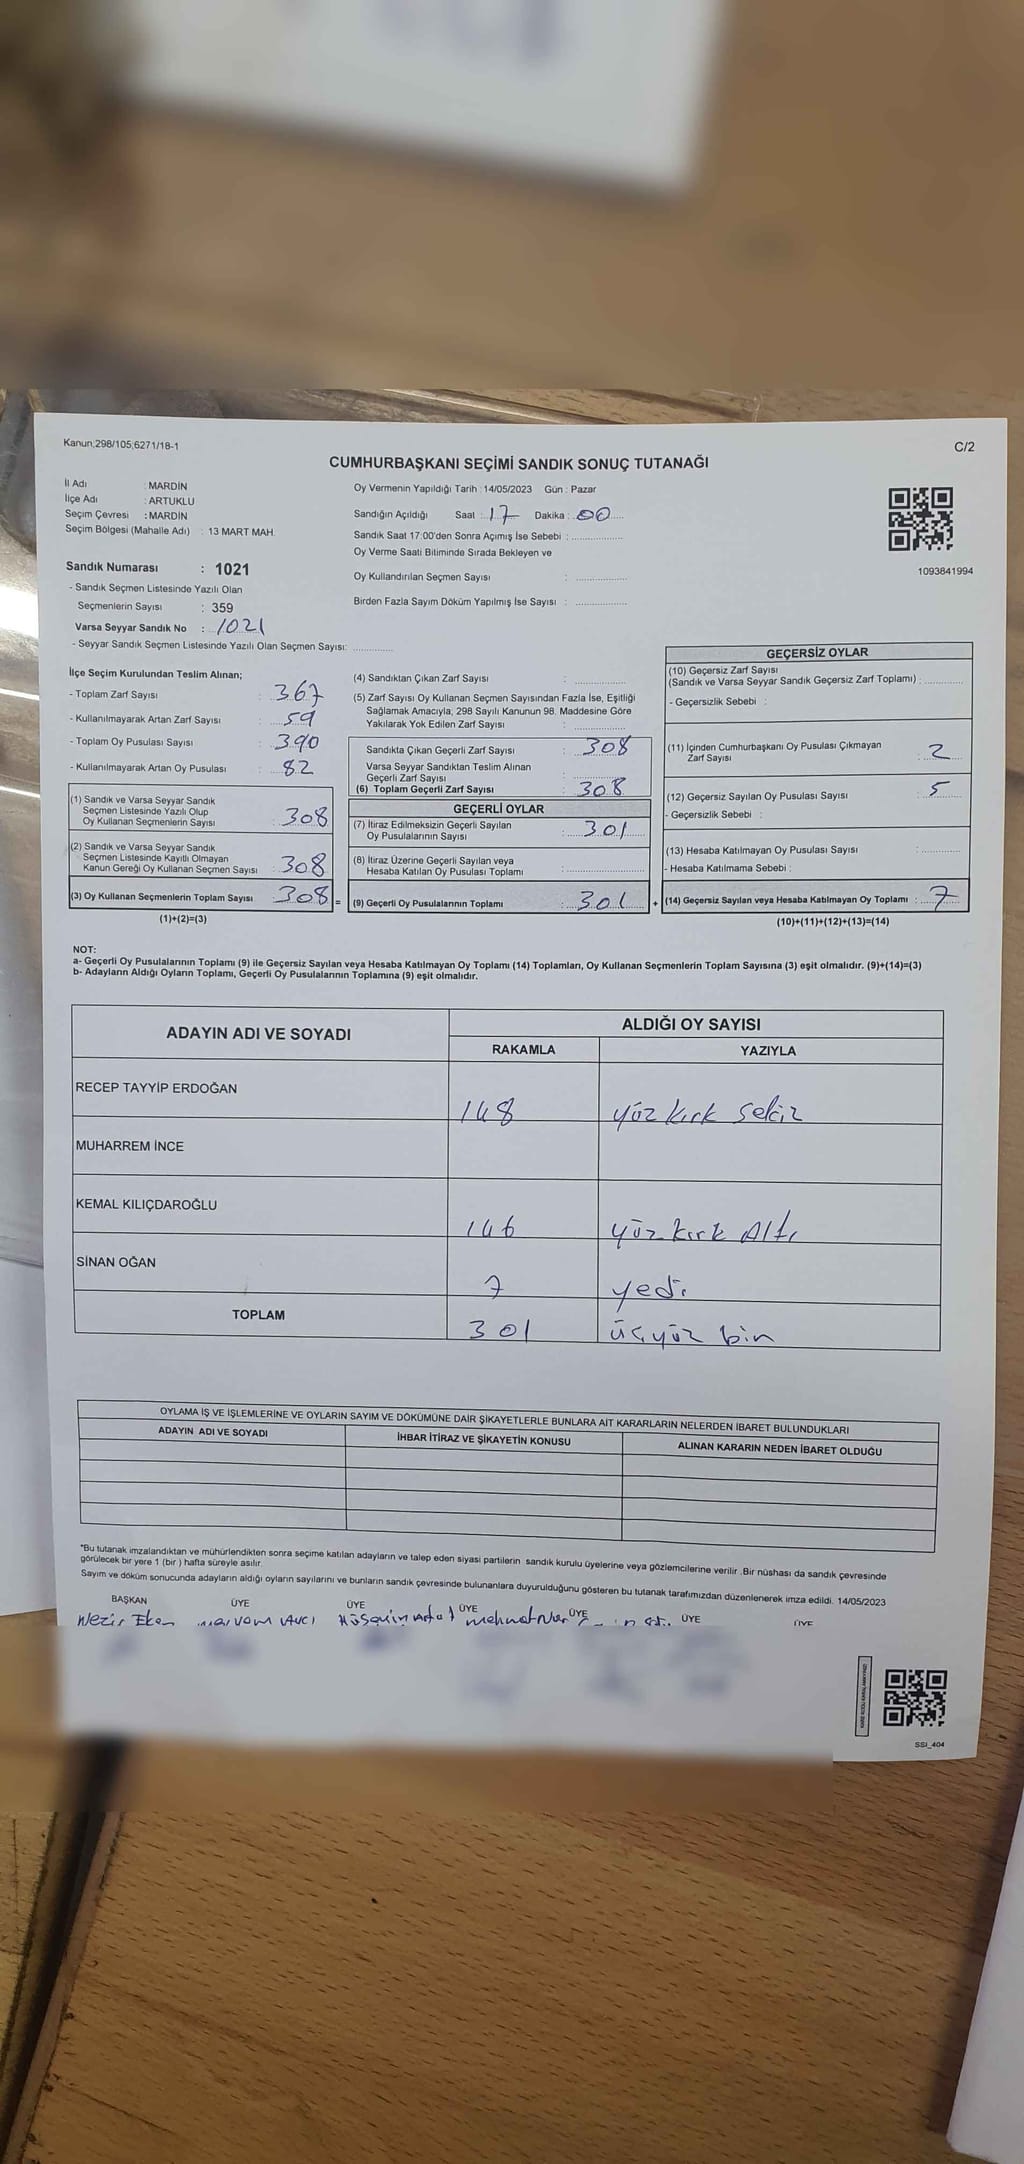 Kanun:298/105;6271/18-1
C/2
CUMHURBAŞKANI SEÇİMİ SANDIK SONUÇ TUTANAĞI
İl Adı : MARDİN
İlçe Adı : ARTUKLU
Seçim Çevresi : MARDİN
Seçim Bölgesi (Mahalle Adı) : 13 MART MAH.
Sandık Numarası : 1021
- Sandık Seçmen Listesinde Yazılı Olan
Seçmenlerin Sayısı : 359
Varsa Seyyar Sandık No : 1021
- Seyyar Sandık Seçmen Listesinde Yazılı Olan Seçmen Sayısı: ..............
Oy Vermenin Yapıldığı Tarih : 14/05/2023 Gün : Pazar
Sandığın Açıldığı Saat : 17 Dakika : 00
Sandık Saat 17:00'den Sonra Açımış İse Sebebi : ..................
Oy Verme Saati Bitiminde Sırada Bekleyen ve
Oy Kullandırılan Seçmen Sayısı : ..................
Birden Fazla Sayım Döküm Yapılmış İse Sayısı : ..................
1093841994
İlçe Seçim Kurulundan Teslim Alınan;
- Toplam Zarf Sayısı : 367
- Kullanılmayarak Artan Zarf Sayısı : 59
- Toplam Oy Pusulası Sayısı : 390
- Kullanılmayarak Artan Oy Pusulası : 82
(1) Sandık ve Varsa Seyyar Sandık
Seçmen Listesinde Yazılı Olup
Oy Kullanan Seçmenlerin Sayısı : 308
(2) Sandık ve Varsa Seyyar Sandık
Seçmen Listesinde Kayıtlı Olmayan
Kanun Gereği Oy Kullanan Seçmen Sayısı : 308
(3) Oy Kullanan Seçmenlerin Toplam Sayısı : 308 =
(1)+(2)=(3)
(4) Sandıktan Çıkan Zarf Sayısı : ..................
(5) Zarf Sayısı Oy Kullanan Seçmen Sayısından Fazla İse, Eşitliği
Sağlamak Amacıyla, 298 Sayılı Kanunun 98. Maddesine Göre
Yakılarak Yok Edilen Zarf Sayısı : ..................
Sandıkta Çıkan Geçerli Zarf Sayısı : 308
Varsa Seyyar Sandıktan Teslim Alınan
Geçerli Zarf Sayısı : ..................
(6) Toplam Geçerli Zarf Sayısı : 308
GEÇERLİ OYLAR
(7) İtiraz Edilmeksizin Geçerli Sayılan
Oy Pusulalarının Sayısı : 301
(8) İtiraz Üzerine Geçerli Sayılan veya
Hesaba Katılan Oy Pusulası Toplamı : ..................
(9) Geçerli Oy Pusulalarının Toplamı : 301 +
GEÇERSİZ OYLAR
(10) Geçersiz Zarf Sayısı
(Sandık ve Varsa Seyyar Sandık Geçersiz Zarf Toplamı) : ............
- Geçersizlik Sebebi :
(11) İçinden Cumhurbaşkanı Oy Pusulası Çıkmayan
Zarf Sayısı : 2
(12) Geçersiz Sayılan Oy Pusulası Sayısı : 5
- Geçersizlik Sebebi :
(13) Hesaba Katılmayan Oy Pusulası Sayısı : ............
- Hesaba Katılmama Sebebi :
(14) Geçersiz Sayılan veya Hesaba Katılmayan Oy Toplamı : 7
(10)+(11)+(12)+(13)=(14)
NOT:
a- Geçerli Oy Pusulalarının Toplamı (9) ile Geçersiz Sayılan veya Hesaba Katılmayan Oy Toplamı (14) Toplamları, Oy Kullanan Seçmenlerin Toplam Sayısına (3) eşit olmalıdır. (9)+(14)=(3)
b- Adayların Aldığı Oyların Toplamı, Geçerli Oy Pusulalarının Toplamına (9) eşit olmalıdır.
ADAYIN ADI VE SOYADI
ALDIĞI OY SAYISI
RAKAMLA YAZIYLA
RECEP TAYYİP ERDOĞAN 148 yüz kırk sekiz
MUHARREM İNCE
KEMAL KILIÇDAROĞLU 146 yüz kırk Altı
SİNAN OĞAN 7 yedi
TOPLAM 301 üçyüz bin
OYLAMA İŞ VE İŞLEMLERİNE VE OYLARIN SAYIM VE DÖKÜMÜNE DAİR ŞİKAYETLERLE BUNLARA AİT KARARLARIN NELERDEN İBARET BULUNDUKLARI
ADAYIN ADI VE SOYADI
İHBAR İTİRAZ VE ŞİKAYETİN KONUSU
ALINAN KARARIN NEDEN İBARET OLDUĞU
*Bu tutanak imzalandıktan ve mühürlendikten sonra seçime katılan adayların ve talep eden siyasi partilerin sandık kurulu üyelerine veya gözlemcilerine verilir .Bir nüshası da sandık çevresinde
görülecek bir yere 1 (bir ) hafta süreyle asılır.
Sayım ve döküm sonucunda adayların aldığı oyların sayılarını ve bunların sandık çevresinde bulunanlara duyurulduğunu gösteren bu tutanak tarafımızdan düzenlenerek imza edildi. 14/05/2023
BAŞKAN ÜYE ÜYE ÜYE ÜYE ÜYE ÜYE
Nezir Eken
SSI_404